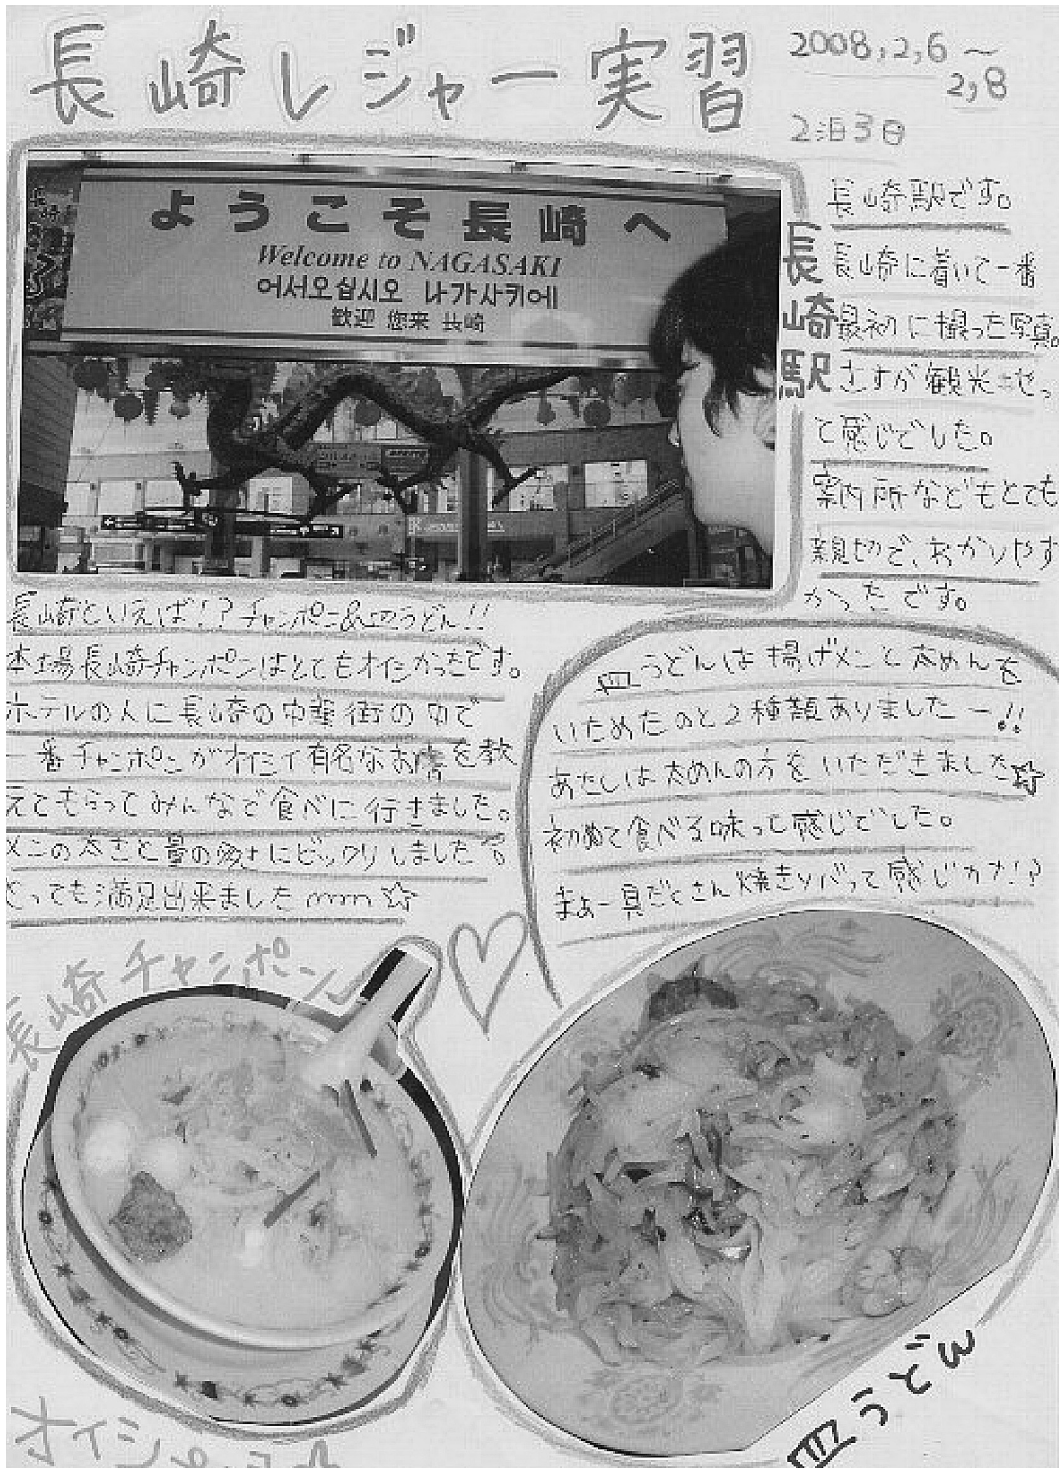 長崎レジャー実習
2008,2,6～
2,8
2泊3日
ようこそ長崎へ
Welcome to NAGASAKI
어서오십시오 나가사키에
歓迎 您来 長崎
長崎駅
長崎駅です。
長崎に着いて一番
最初に撮った写真。
さすが観光地っ
て感じでした。
案内所などもとても
親切で、わかりやす
かったです。
長崎といえば!?チャンポン&皿うどん!!
本場長崎チャンポンはとてもオイシかったです。
ホテルの人に長崎の中華街の中で
一番チャンポンがオイシイ有名なお店を教
えてもらってみんなで食べに行きました。
メンの太さと量の多さにビックリしました
とっても満足出来ました☆
皿うどんは揚げメンと太めんを
いためたのと2種類ありましたー!!
あたしは太めんの方をいただきました☆
初めて食べる味って感じでした。
まあー具だくさん焼きソバって感じカナ!?
長崎チャンポン
皿うどん